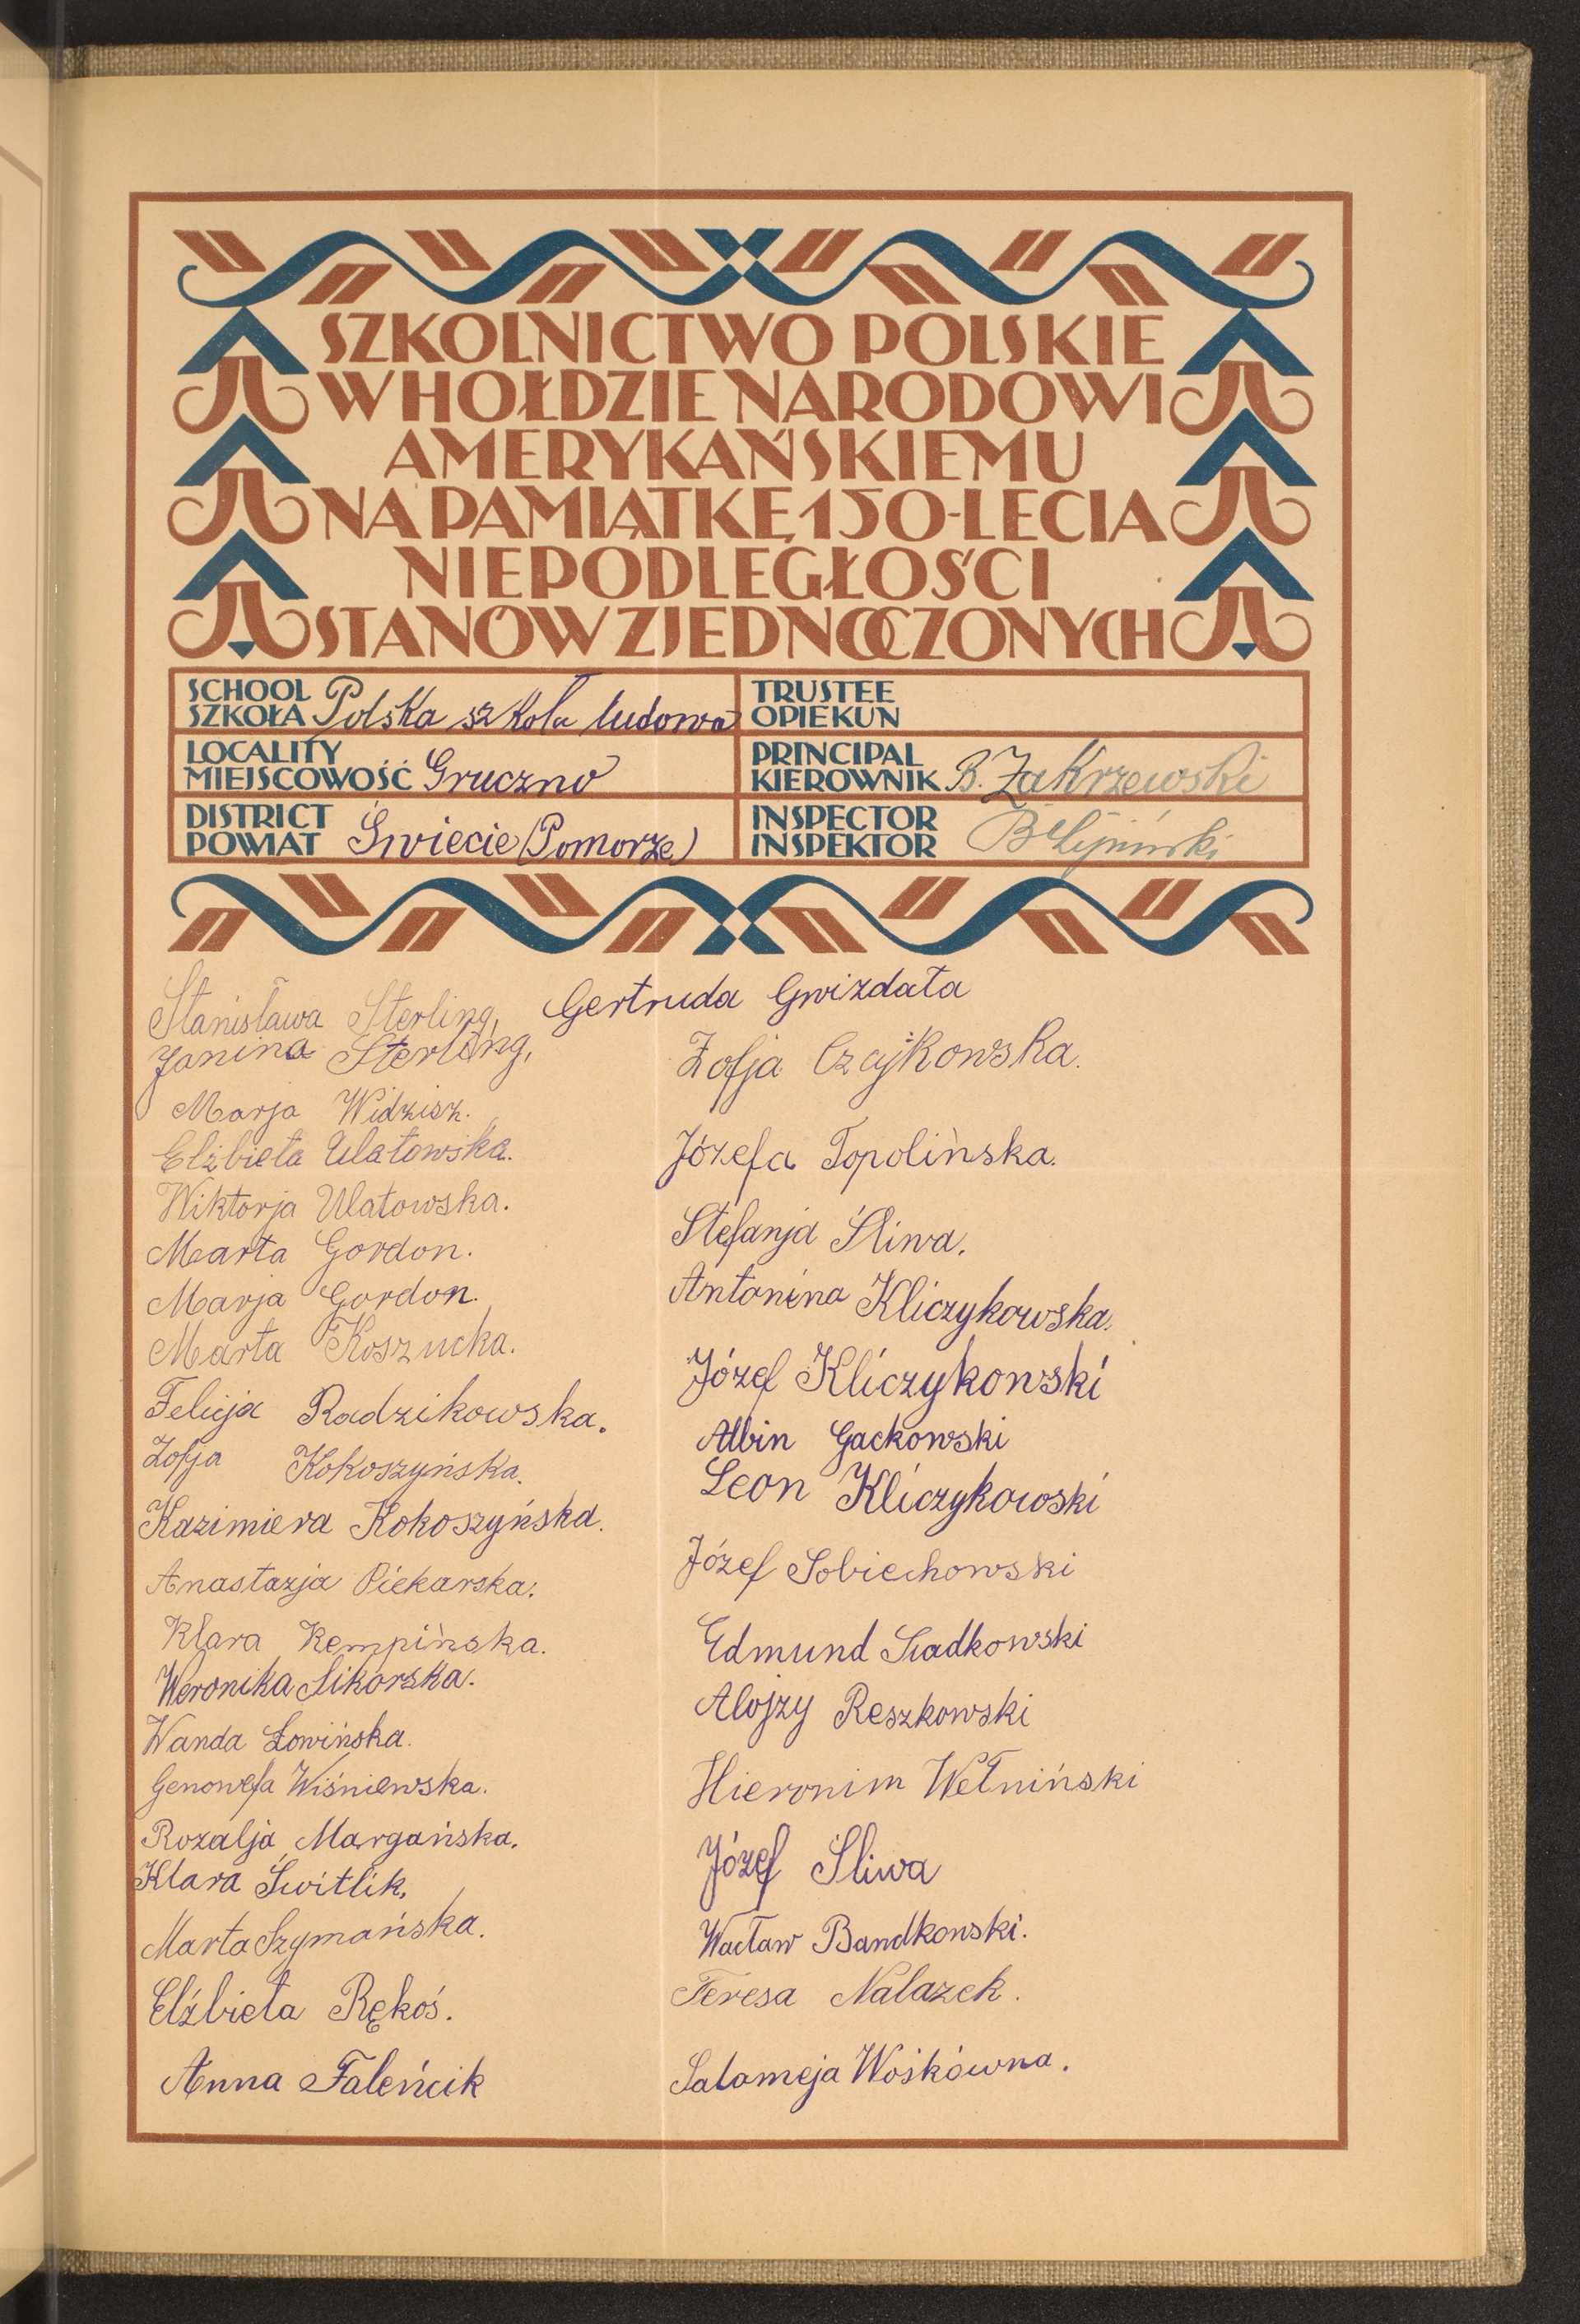 SZKOLNICTWO POLSKIE
W HOŁDZIE NARODOWI
AMERYKAŃSKIEMU
NA PAMIĄTKĘ 150-LECIA
NIEPODLEGŁOŚCI
STANÓW ZJEDNOCZONYCH
SCHOOL
SZKOŁA Polska szkoła ludowa
TRUSTEE
OPIEKUN
LOCALITY
MIEJSCOWOŚĆ Gruczno
PRINCIPAL
KIEROWNIK B. Zakrzewski
DISTRICT
POWIAT Świecie (Pomorze)
INSPECTOR
INSPEKTOR
Stanisława Sterling,
Janina Sterling,
Marja Widzisz.
Elżbieta Ulatowska.
Wiktorja Ulatowska.
Marta Gordon.
Marja Gordon.
Marta Koszucka.
Felicja Radzikowska.
Zofja Kokoszyńska.
Kazimiera Kokoszyńska.
Anastazja Piekarska.
Klara Kempińska.
Weronika Sikorska.
Wanda Łowińska.
Genowefa Wiśniewska.
Rozalja Margańska.
Klara Świtlik,
Marta Szymańska.
Elżbieta Rękoś.
Anna Faleńcik
Gertruda Gwizdała
Zofja Czajkowska.
Józefa Topolińska.
Stefanja Śliwa.
Antonina Kliczykowska.
Józef Kliczykowski
Albin Gackowski
Leon Kliczykowski
Józef Sobiechowski
Edmund Sadkowski
Alojzy Reszkowski
Hieronim Wełniński
Józef Śliwa
Wacław Bandkowski.
Teresa Nalazek.
Salomeja Wośkówna.